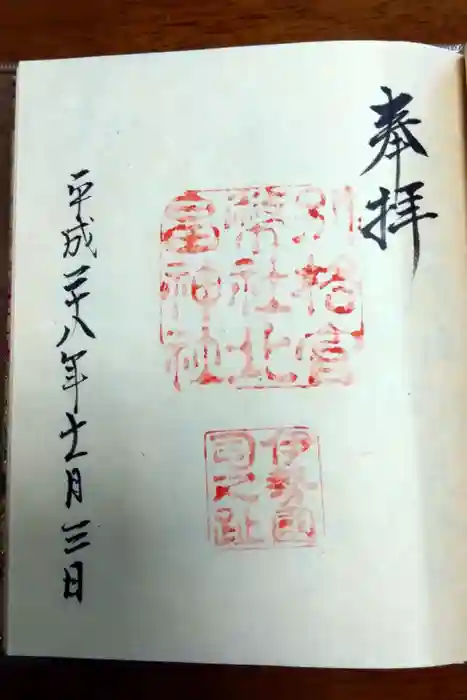 奉拝
別格官
幣社北
畠神社
伊勢国
司之趾
平成二十八年十一月三日